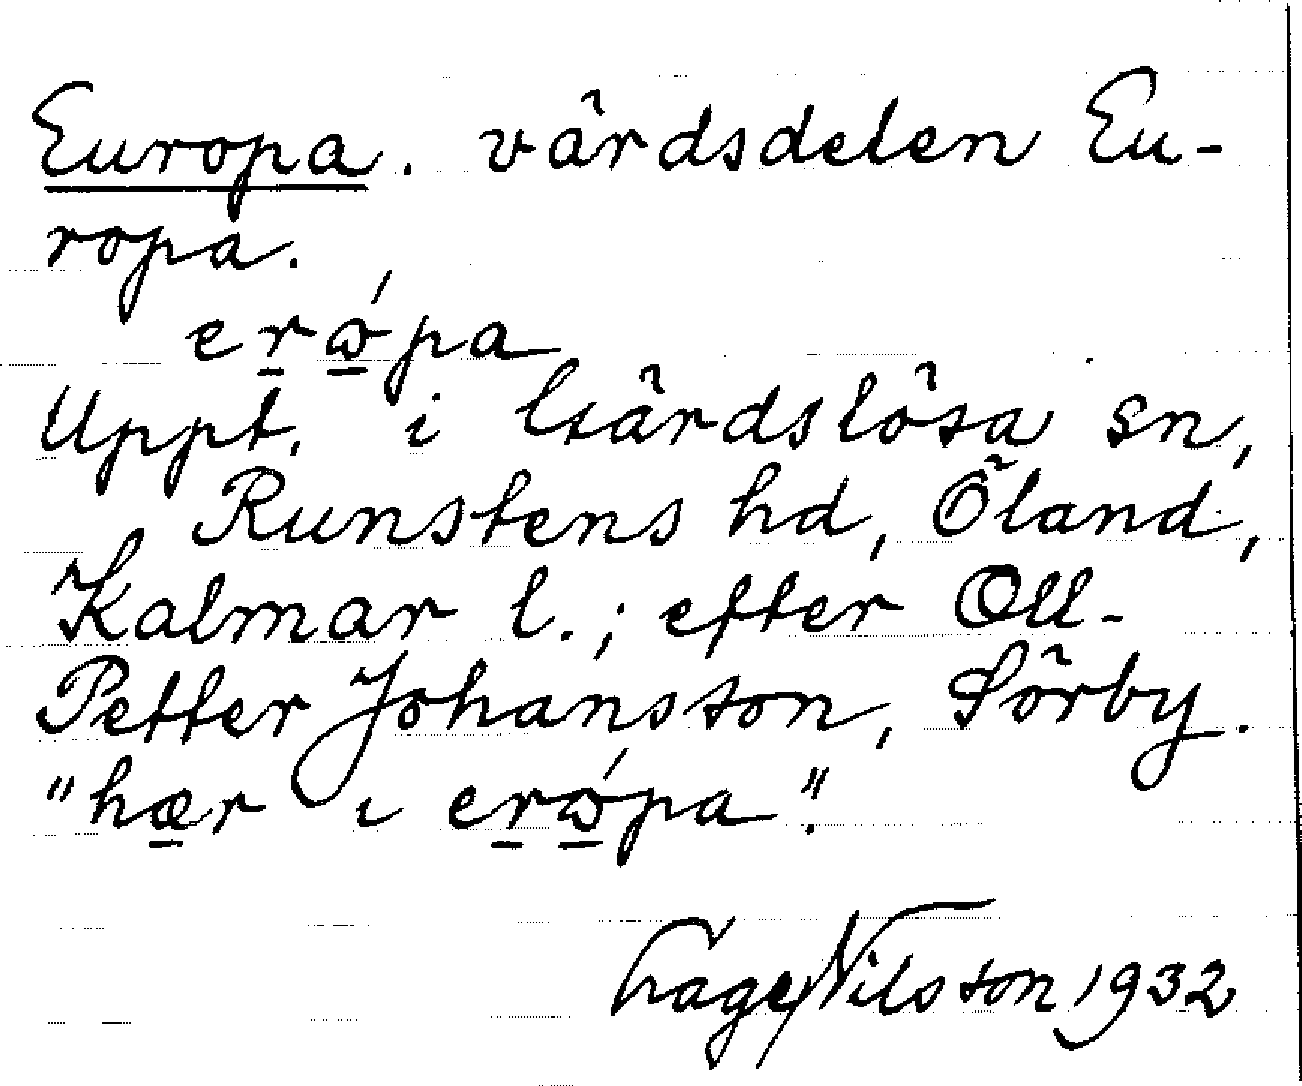 Europa. värdsdelen Eu-
ropa.
erώpa
Uppt. i Gärdslösa sn,
Runstens hd, Öland,
Kalmar l.; efter Oll-
Petter Johansson, Sörby.
"hær ı erώpa".
Tage Nilsson 1932